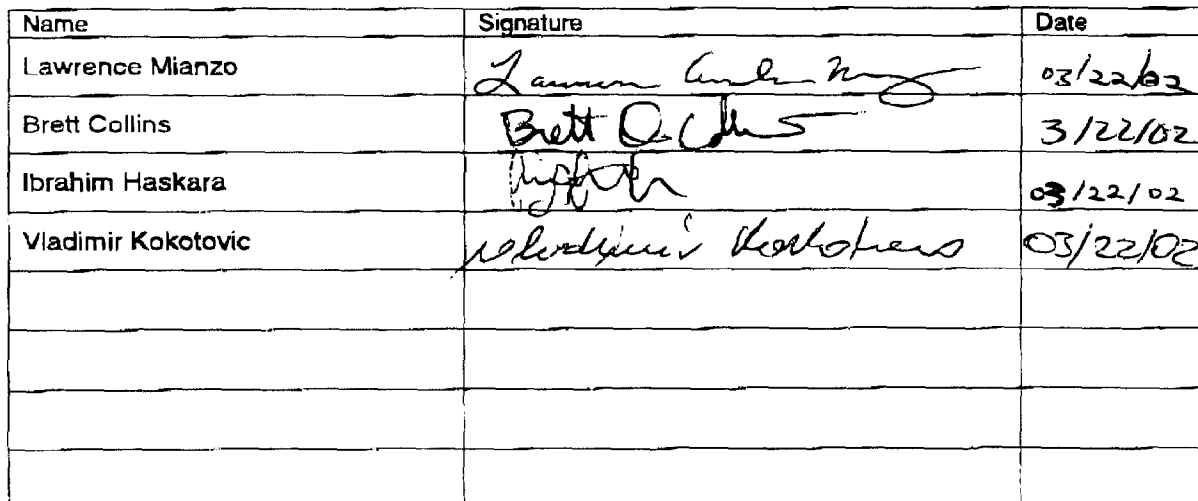 Name Signature Date
Lawrence Mianzo 03/22/02
Brett Collins Brett D. Collins 3/22/02
Ibrahim Haskara 03/22/02
Vladimir Kokotovic Vladimir Kokotovic 03/22/02